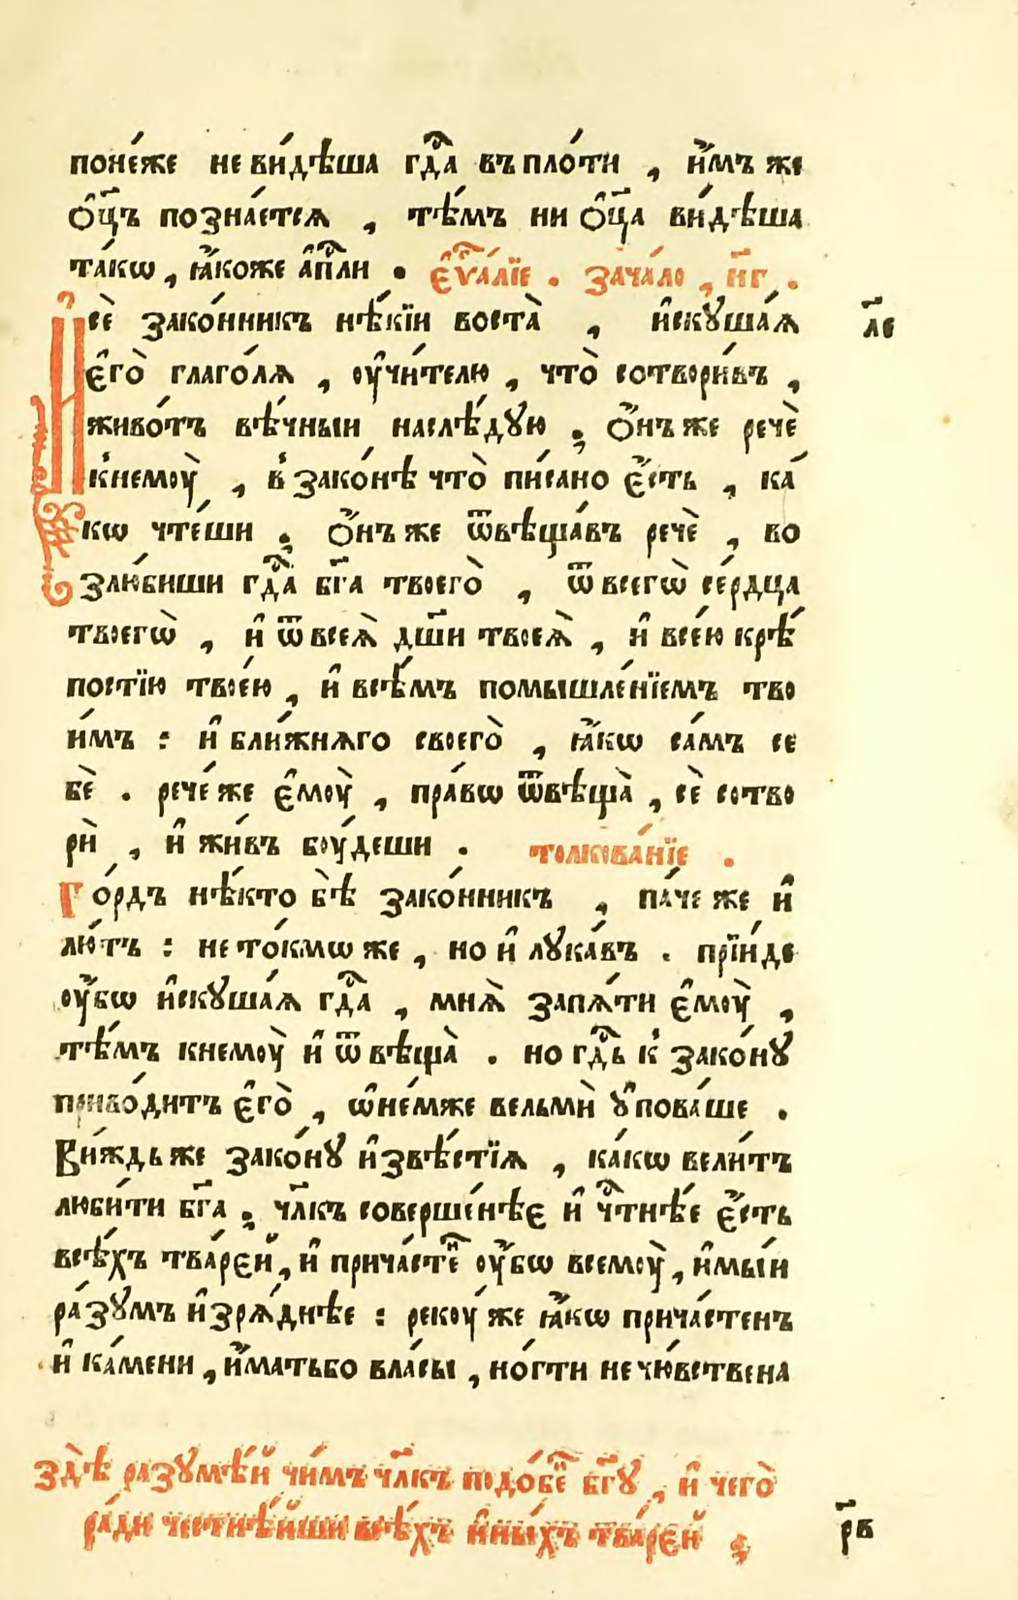 поне́же не ви́дѣша гдⷭ҇а въ пло́ти , и҆́мъ же
ѻ҆ц҃ъ позна́етсѧ , тѣ́мъ ни ѻ҆ц҃а ви́дѣша
та́кѡ , ꙗ҆́коже а҆пⷭ҇ли . є҆ѵⷢ҇а́лїе . зача́ло , н҃г .
И҆ сѐ зако́нникъ нѣ́кїи воста̀ , и҆скꙋша́ѧ л҃е
є҆го̀ глаго́лѧ , ᲂу҆чи́телю , что̀ сотвори́въ ,
живо́тъ вѣ́чныи наслѣ́дꙋю ; ѻ҆́нъ же речѐ
к̾немꙋ̀ , в̾ зако́нѣ что̀ пи́сано є҆́сть , ка́
кѡ чте́ши ; ѻ҆́нъ же ѿвѣща́въ речѐ , во
злю́биши гдⷭ҇а бг҃а твоего̀ , ѿ всегѡ̀ се́рдца
твоегѡ̀ , и҆ ѿ всеѧ̀ дш҃и твоеѧ̀ , и҆ все́ю крѣ́
постїю твое́ю , и҆ всѣ́мъ помышле́нїемъ тво
и́мъ : и҆ бли́жнѧго своего̀ , ꙗ҆́кѡ са́мъ се
бѐ . рече́ же є҆мꙋ̀ , пра́вѡ ѿвѣща̀ , сѐ сотво
рѝ , и҆ жи́въ бꙋ́деши . толкова́нїе .
Го́рдъ нѣ́кто бѣ̀ зако́нникъ , па́че же и҆
лю́тъ : не то́кмѡ же , но и҆ лꙋка́въ . прїи́де
ᲂу҆́бѡ и҆скꙋша́ѧ гдⷭ҇а , мнѧ̀ запѧ́ти є҆мꙋ̀ ,
тѣ́мъ кнемꙋ̀ и҆ ѿвѣща̀ . но гдⷭ҇ь к̾ зако́нꙋ
приво́дитъ є҆го̀ , ѡ҆ не́мже вельмѝ ᲂу҆пова́ше .
Ви́ждь же зако́нꙋ и҆звѣ́стїѧ , ка́кѡ вели́тъ
люби́ти бг҃а ; чл҃къ соверше́нѣе и҆ чⷭ҇тнѣ́е є҆́сть
всѣ́хъ тва́рей , и҆ прича́стенъ ᲂу҆́бѡ всемꙋ̀ , и҆мы́и
ра́зꙋмъ и҆зрѧ́днѣе : рекꙋ́ же ꙗ҆́кѡ прича́стенъ
и҆ ка́мени , и҆́матьбо власы̀ , но́гти нечю́вствена
здѣ̀ разꙋмѣ́й чи́мъ чл҃къ подо́бенъ бг҃ꙋ , и҆ чего̀
ра́ди честнѣ́йши всѣ́хъ и҆ны́хъ тва́рей ;
р҃в